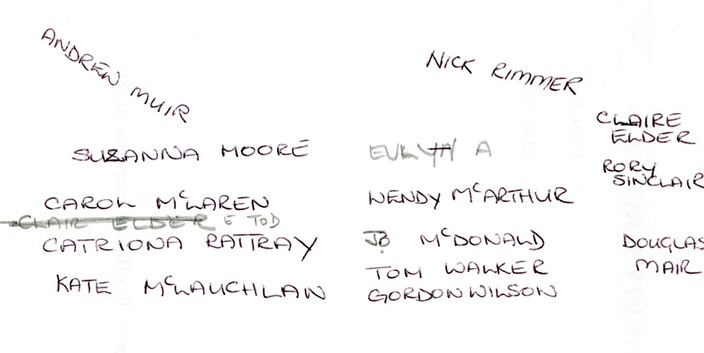 ANDREW MUIR
NICK RIMMER
CLAIRE
ELDER
SUZANNA MOORE
EVLYN A
RORY
SINCLAIR
CAROL McLAREN
WENDY McARTHUR
CLAIR ELDER E TOD
CATRIONA RATTRAY
McDONALD
DOUGLAS
MAIR
TOM WALKER
KATE McLAUCHLAN
GORDON WILSON